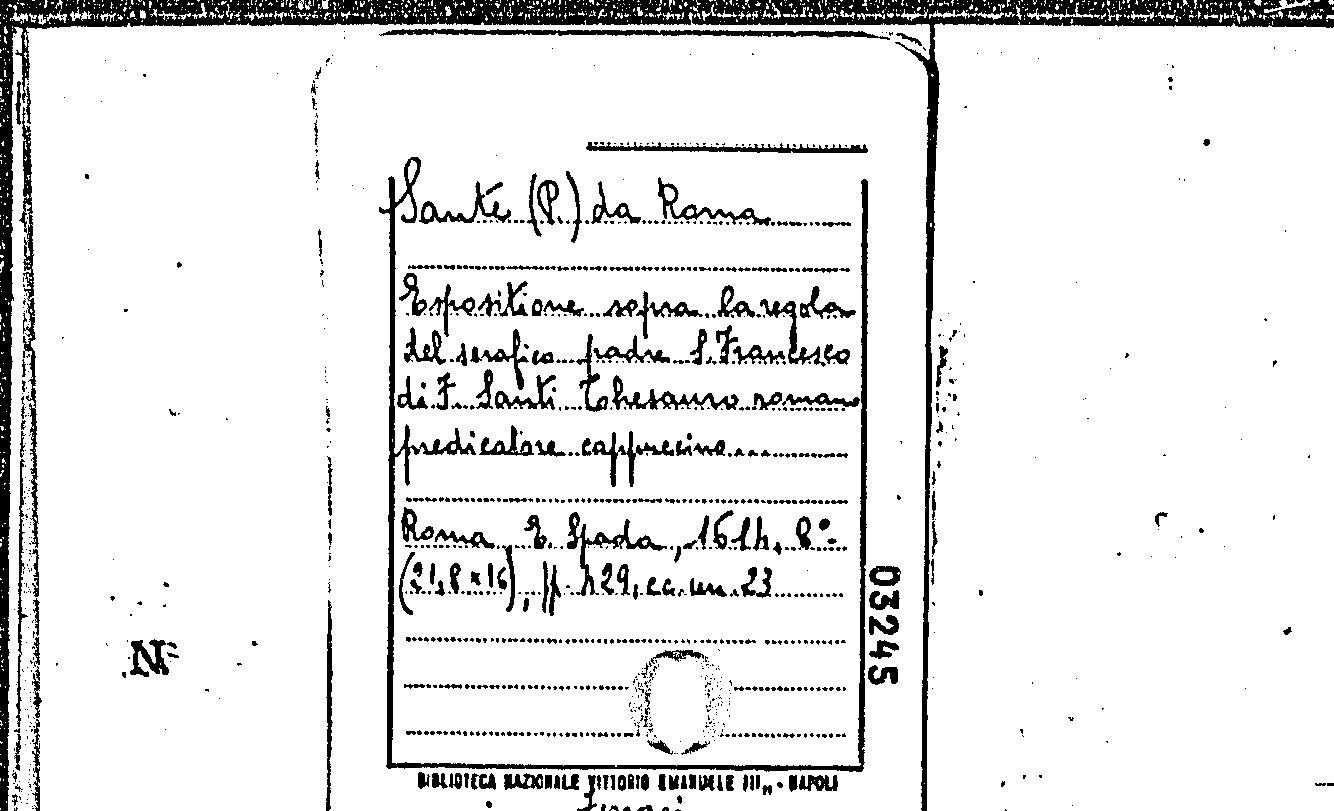 Sante (P.) da Roma
Espositione sopra la regola
del serafico padre S. Francesco
di F. Santi Thesauro romano
predicatore cappuccino...
Roma, E. Spada, 1614, 8°.
(21,8 x 16), pp. 429, cc. nn. 23
03245
N
BIBLIOTECA NAZIONALE VITTORIO EMANUELE III,, - NAPOLI